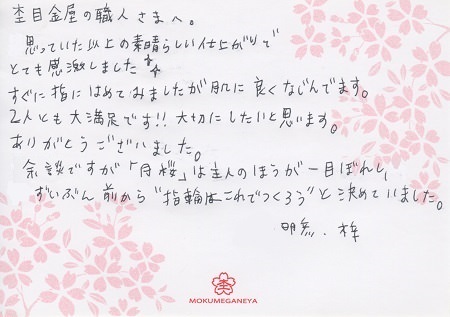 杢目金屋の職人さまへ。
思っていた以上の素晴らしい仕上がりで
とても感激しました
すぐに指にはめてみましたが肌に良くなじんでます。
2人とも大満足です!!大切にしたいと思います。
ありがとうございました。
余談ですが「月桜」は主人のほうが一目ぼれし、
ずいぶん前から“指輪はこれでつくろう”と決めていました。
梓
MOKUMEGANEYA